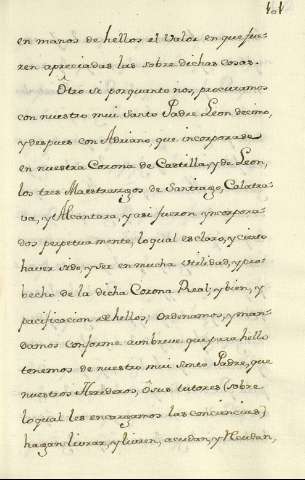 en manos de hellos el Valor en que fue-
ren apreciadas las sobre dichas cosas.
Otro si porquanto nos, procuramos
con nuestro mui Santo Padre Leon decimo,
y despues con Adriano, que incorporase
en nuestra Corona de Castilla, y de Leon,
los tres Maestrazgos de Santiago, Calatra-
va, y Alcantara, y asi fueron yncorpora-
dos perpetuamente, lo qual es claro, y cierto
haver sido, y ser en mucha utilidad, y pro-
becho de la dicha Corona Real; y bien, y
pacificacion de hellos; ordenamos, y man-
damos conforme aun breve que para hello
tenemos de nuestro mui Santo Padre, que
nuestros Herederos, ô sus tutores (sobre
lo qual les encargamos las conciencias)
hagan librar, y libren, acudan, y